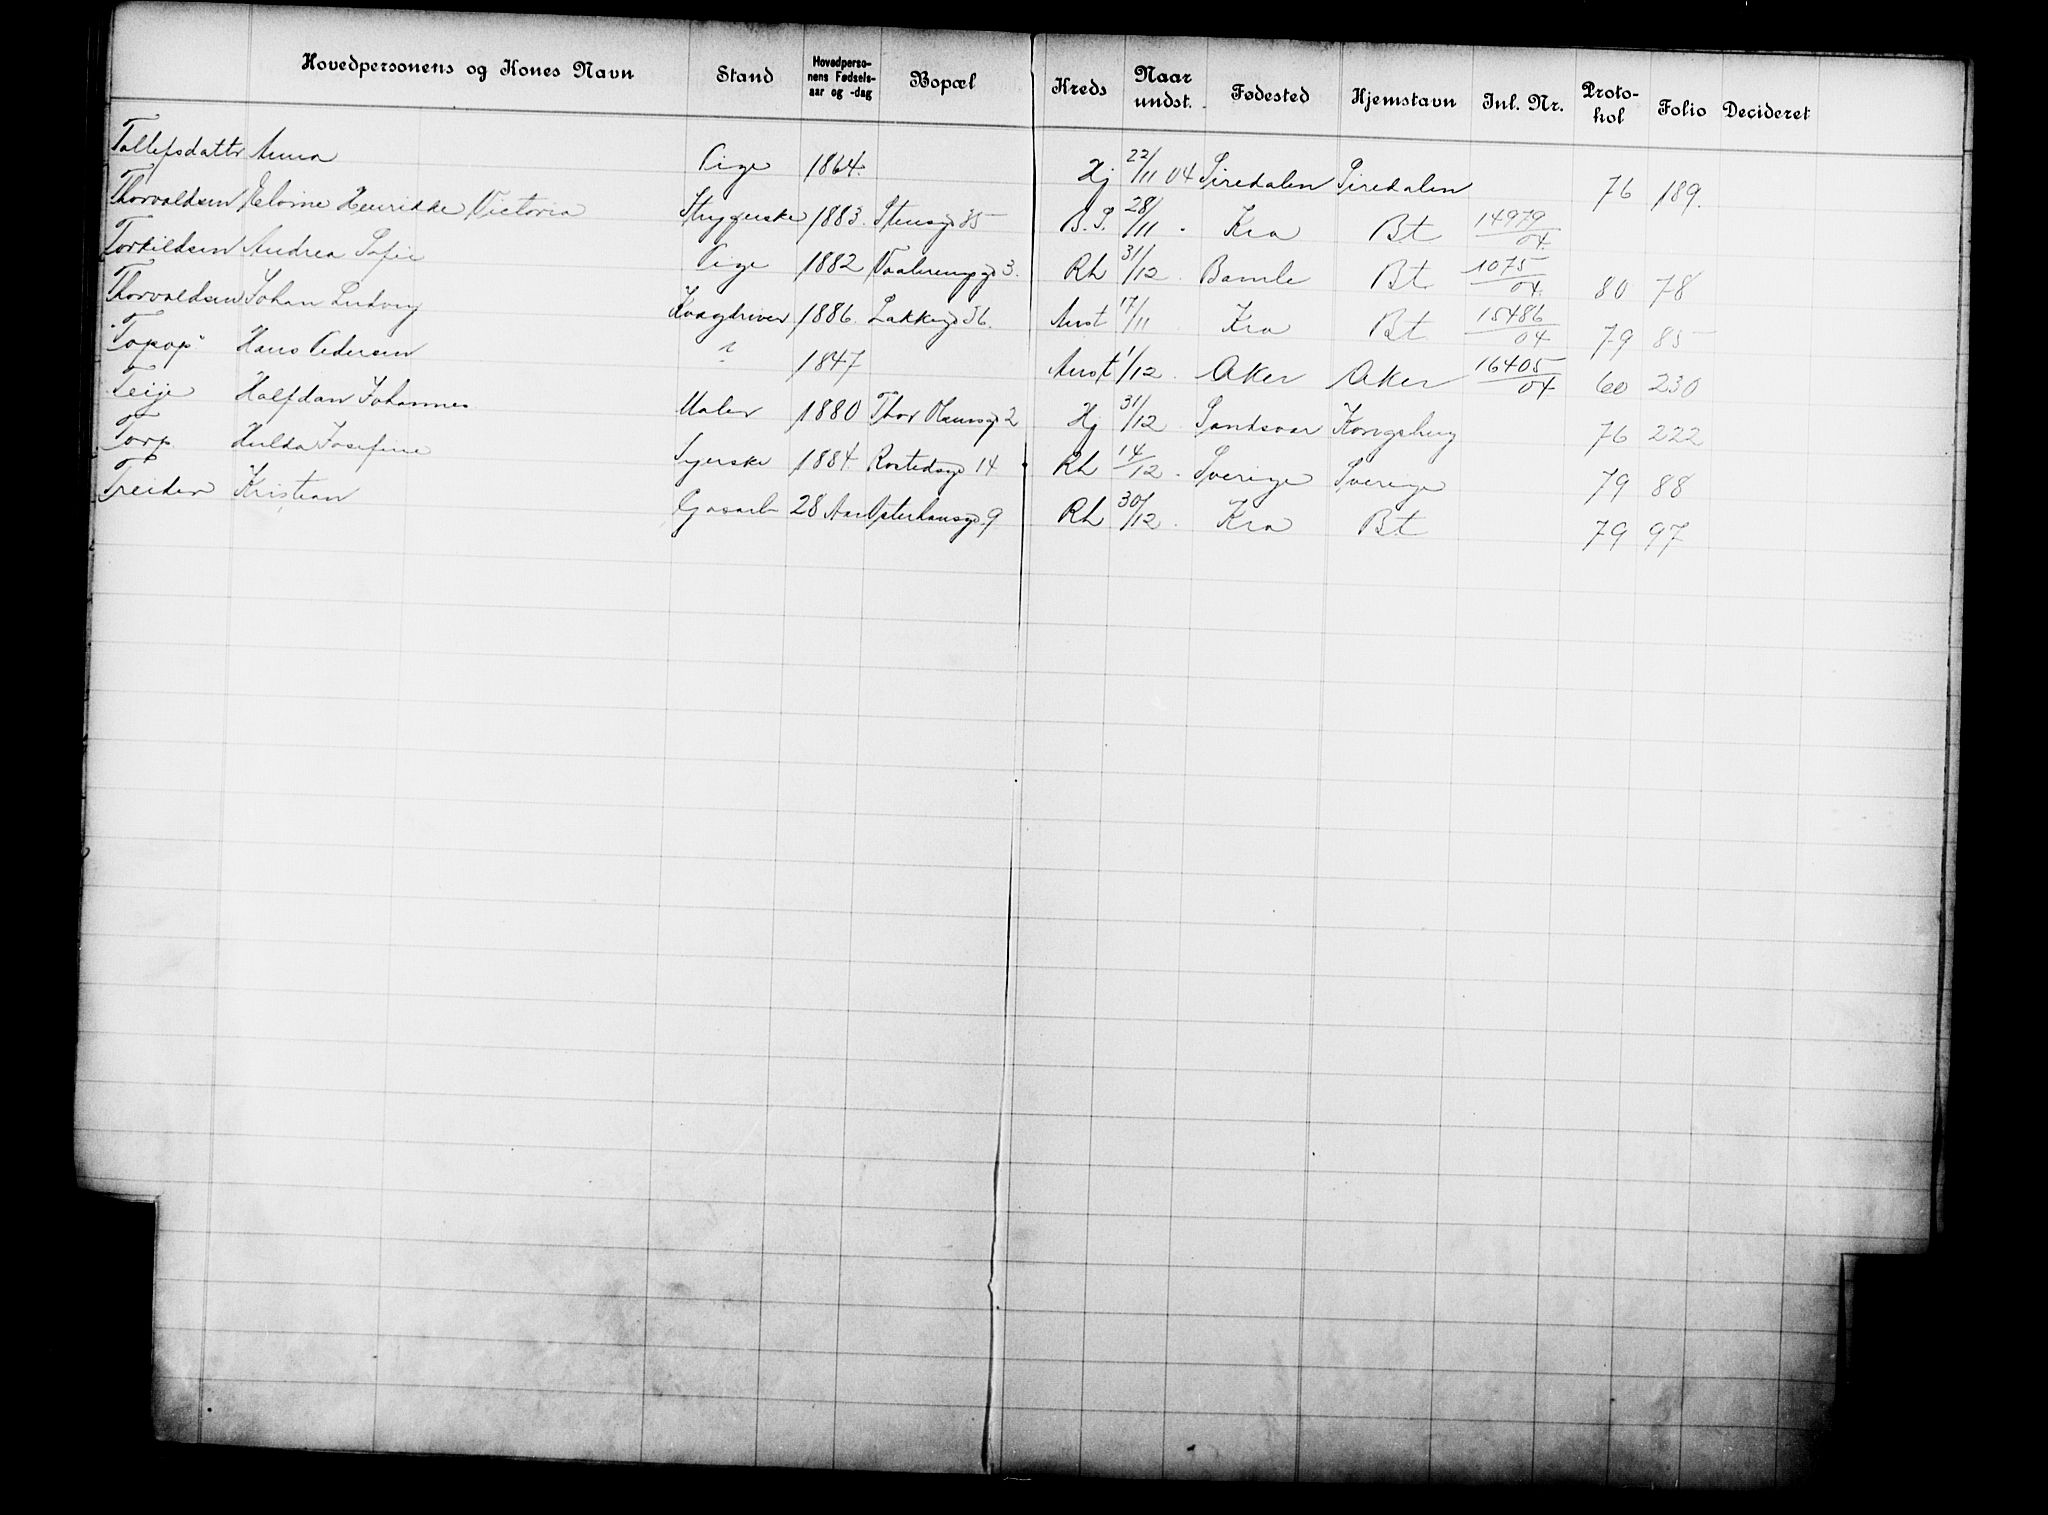 Hovedpersonens og Kones Navn Stand Hovedpersonens Fødselsaar og -dag Bopæl Kreds Naar undst. Fødested Hjemstavn Jnl. Nr. Protokol Folio Decideret
Tollefsdattr Anna Pige 1864. Hj 22/11 04 Siredalen Siredalen 76 189.
Thorvaldsen Elvine Henrikke Victoria Strygerske 1883. Stensgd 35 B.S. 28/11 . Kra Bt 14979/04.
Torkildsen Andrea Sofie Pige 1882 Vaalerenggd 3. Rh 31/12 . Bamle Bt 1075/04. 80 78
Thorvaldsen Johan Ludvig 1886. Lakkegd 56. Anst 17/11 Kra Bt 15486/04 79 85
"Topop" Hans Pedersen ? 1847 Anst 1/12 . Aker Aker 16405/04 60 230
Teije Halfdan Johannes Maler 1880 Thor Olsensgd 2 Hj 31/12 . Sandsvær Kongsberg 76 222
Torp Hulda Josefine Syerske 1884 Rostedsgd 14 Rh 14/12 . Sverige Sverige 79 88
Treider Kristian Gasarb 28 Aar Osterhausgd. 9 Rh 30/12 . Kra Bt 79 97